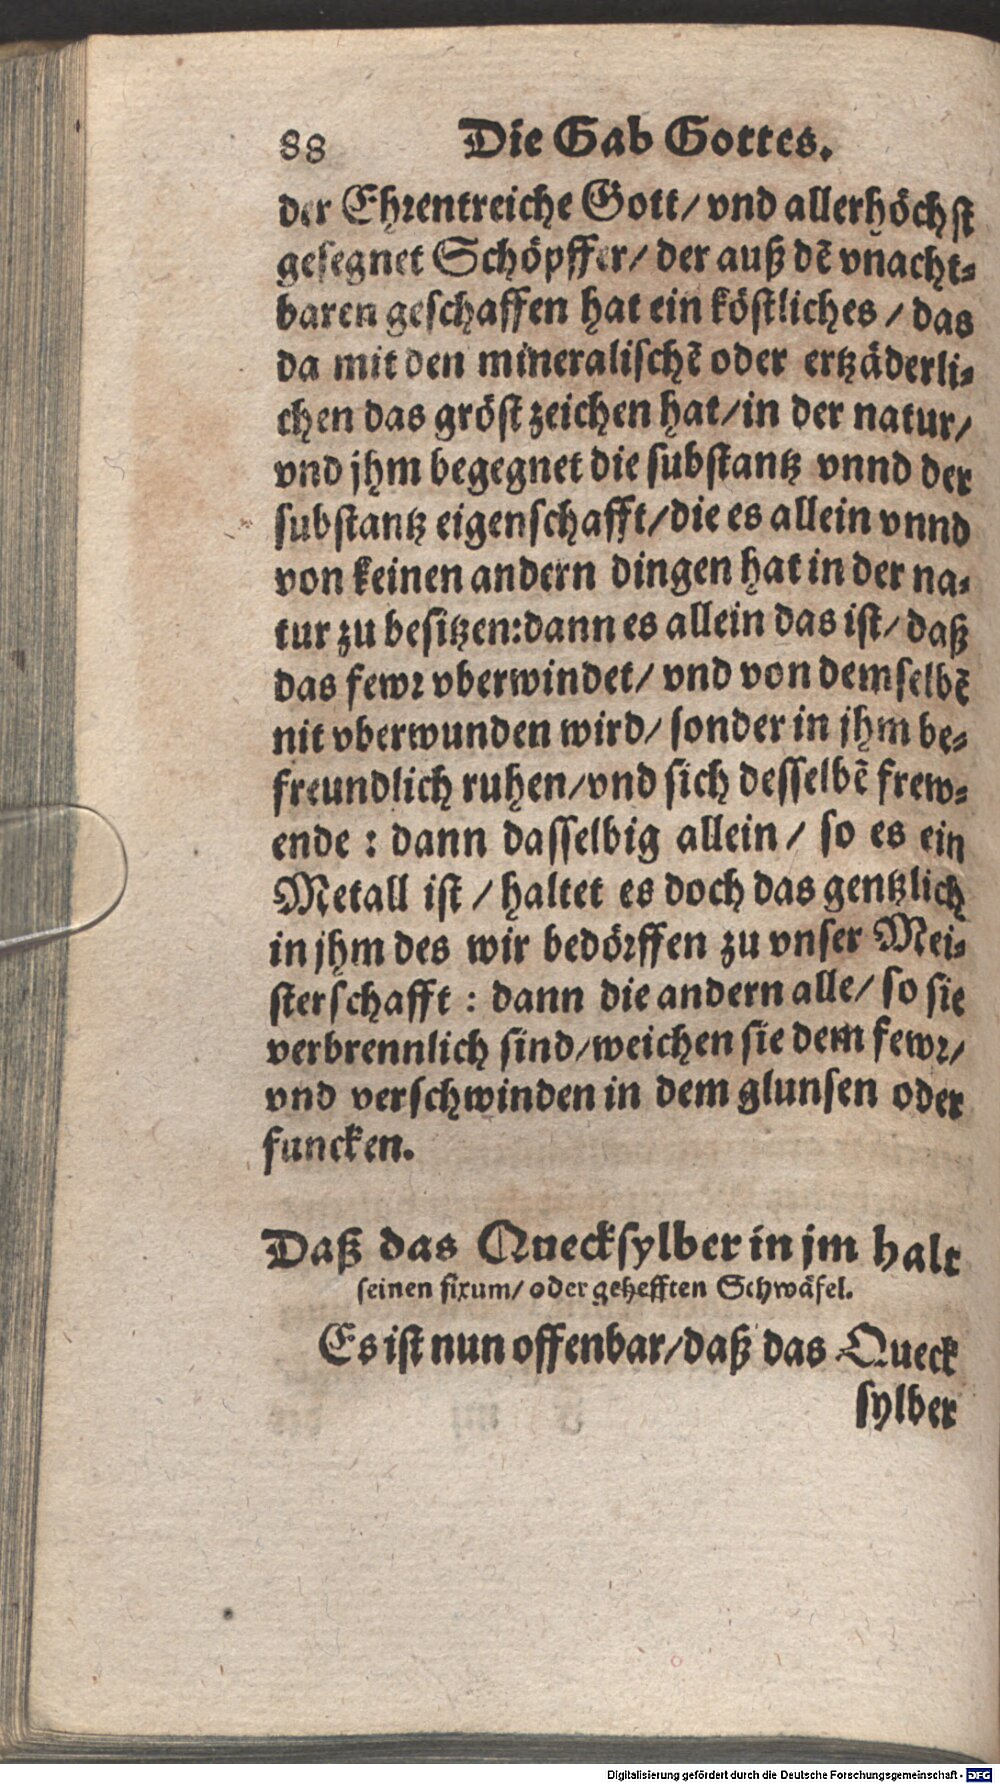 88 Die Gab Gottes.
der Ehrentreiche Gott/ vnd allerhöchst
gesegnet Schöpffer/ der auß dē vnacht-
baren geschaffen hat ein köstliches / das
da mit den mineralischē oder ertzäderli-
chen das gröst zeichen hat/in der natur/
vnd jhm begegnet die substantz vnnd der
substantz eigenschafft/die es allein vnnd
von keinen andern dingen hat in der na-
tur zu besitzen:dann es allein das ist/ daß
das fewr vberwindet/ vnd von demselbē
nit vberwunden wird/ sonder in jhm be-
freundlich ruhen/vnd sich desselbē frew-
ende : dann dasselbig allein / so es ein
Metall ist / haltet es doch das gentzlich
in jhm des wir bedörffen zu vnser Mei-
sterschafft : dann die andern alle/ so sie
verbrennlich sind/weichen sie dem fewr/
vnd verschwinden in dem glunsen oder
funcken.
Daß das Quecksylber in jm halt
seinen fixum/ oder gehefften Schwäfel.
Es ist nun offenbar/daß das Queck
sylber
Digitalisierung gefördert durch die Deutsche Forschungsgemeinschaft - DFG